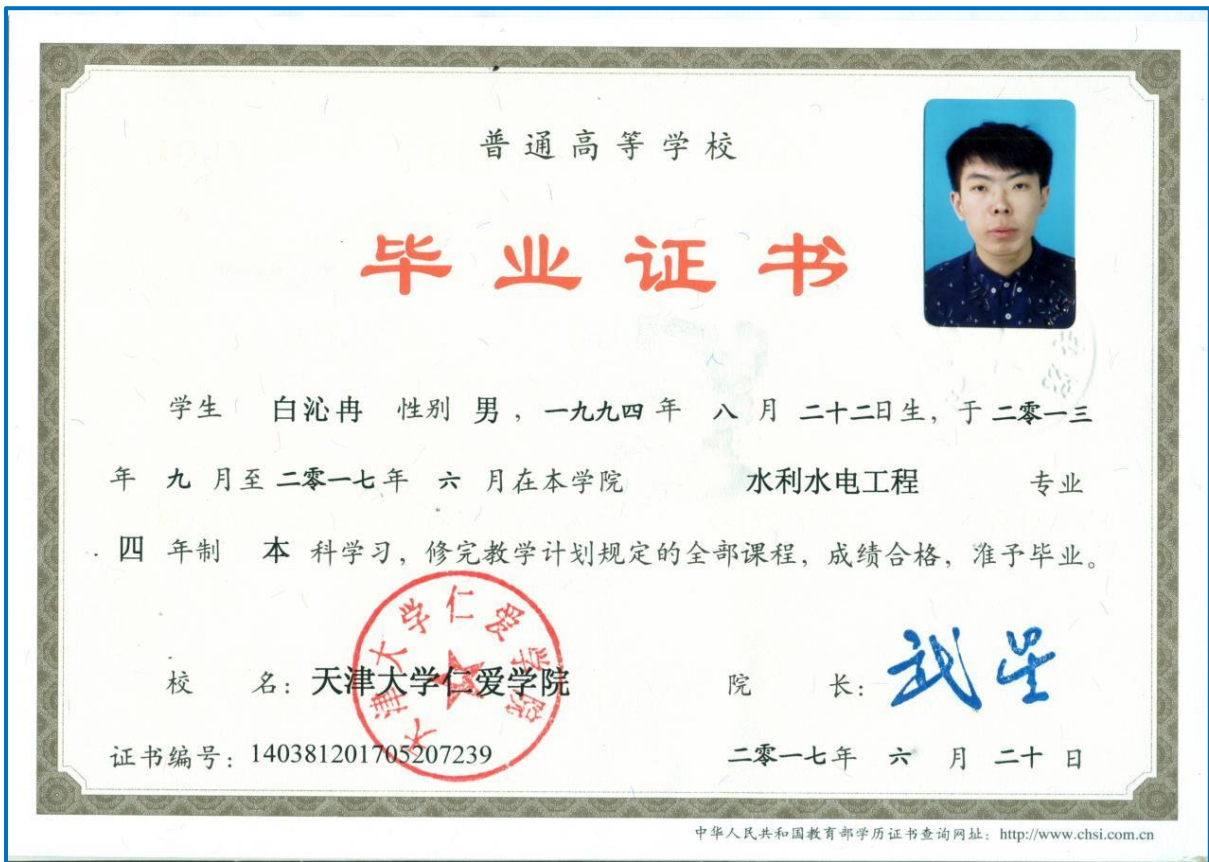 普通高等学校
毕业证书
学生 白沁冉 性别 男，一九九四年 八 月 二十二日生，于二零一三
年 九 月至二零一七年 六 月在本学院 水利水电工程 专业
四 年制 本 科学习，修完教学计划规定的全部课程，成绩合格，准予毕业。
天津大学仁爱学院
校 名：天津大学仁爱学院 院 长：武星
证书编号：140381201705207239 二零一七年 六 月 二十 日
中华人民共和国教育部学历证书查询网址：http://www.chsi.com.cn